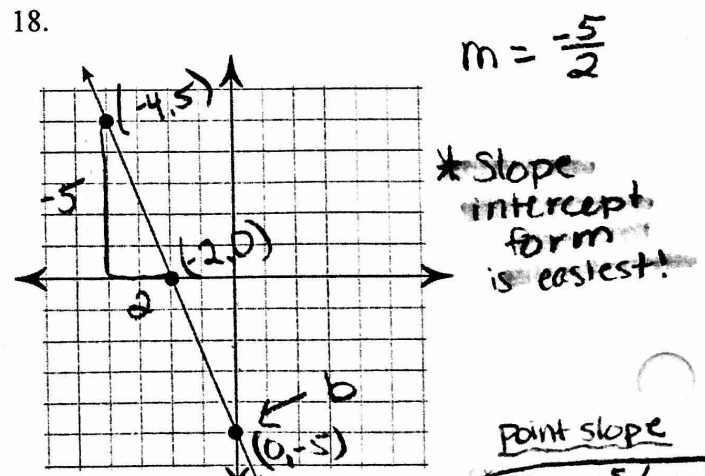 18.
m = -5/2
(-4,5)
* Slope
intercept
form
is easiest!
-5
(-2,0)
2
b
(0,-5)
point slope